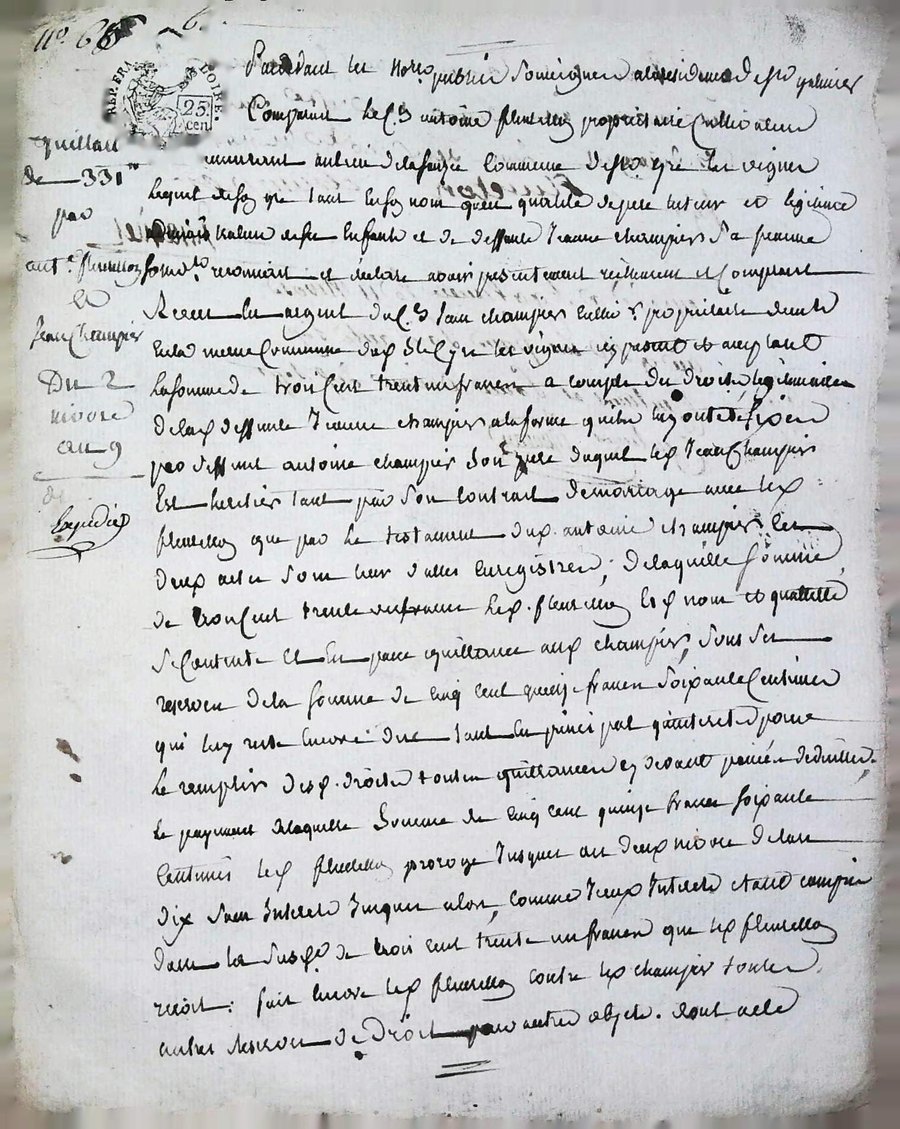 n.° 66
6.
REP. FRA
LOIRE.
25.
cen
quittance
de 331 fr
par
ant.e fleurelloz
a
Jean Champier
Du 2
nivose
an 9
Expedié
Pardevant les Not.res publics soussignes a la residence de
Comparait le C.en antoine proprietaire Cultivateur
demeurant au lieu de la Commune de st Cyr les vignes
lequel de son gré tant en son nom qu'en qualité de pere tuteur et legitime
de ses Enfants et de deffunte Jeanne champier sa femme
reconnait et declare avoir presentement reellement et Comptant
Receu en argent du C.en Jean champier proprietaire demt
En la meme Commune dud St Cyr les vignes icy present et acceptant
La somme de trois Cent trent un francs a compte des droits legitimaires
de lad deffunte Jeanne champier a la forme qu'elle luy ont été fixés
par deffunt antoine champier son pere duquel led Jean Champier
Est heritier tant par son Contrat de mariage avec led
que par le testament dud. antoine champier les
deux actes en leur dattes Enregistrés, de laquelle somme
de trois Cent trente un francs led. esd noms et qualités
se Contente et En passe quittance aud champier, sous ses
reserves de la somme de Cinq Cent quinze francs soixante Centimes
qui luy reste Encore due tant En principal qu'interets pour
le remplir desd. droits toutes quittances cy devant passées deduittes.
Le payement de laquelle Somme de Cinq Cent quinze francs soixante
Centimes led proroge Jusques au deux nivose de l'an
dix sans Interets Jusques alors, Comme Iceux Interets etant compris
dans la susd.e de trois cent trente un francs que led
recoit: fait Encore led contre led champier toutes
autres reserves de Droit pour autres objets. dont acte